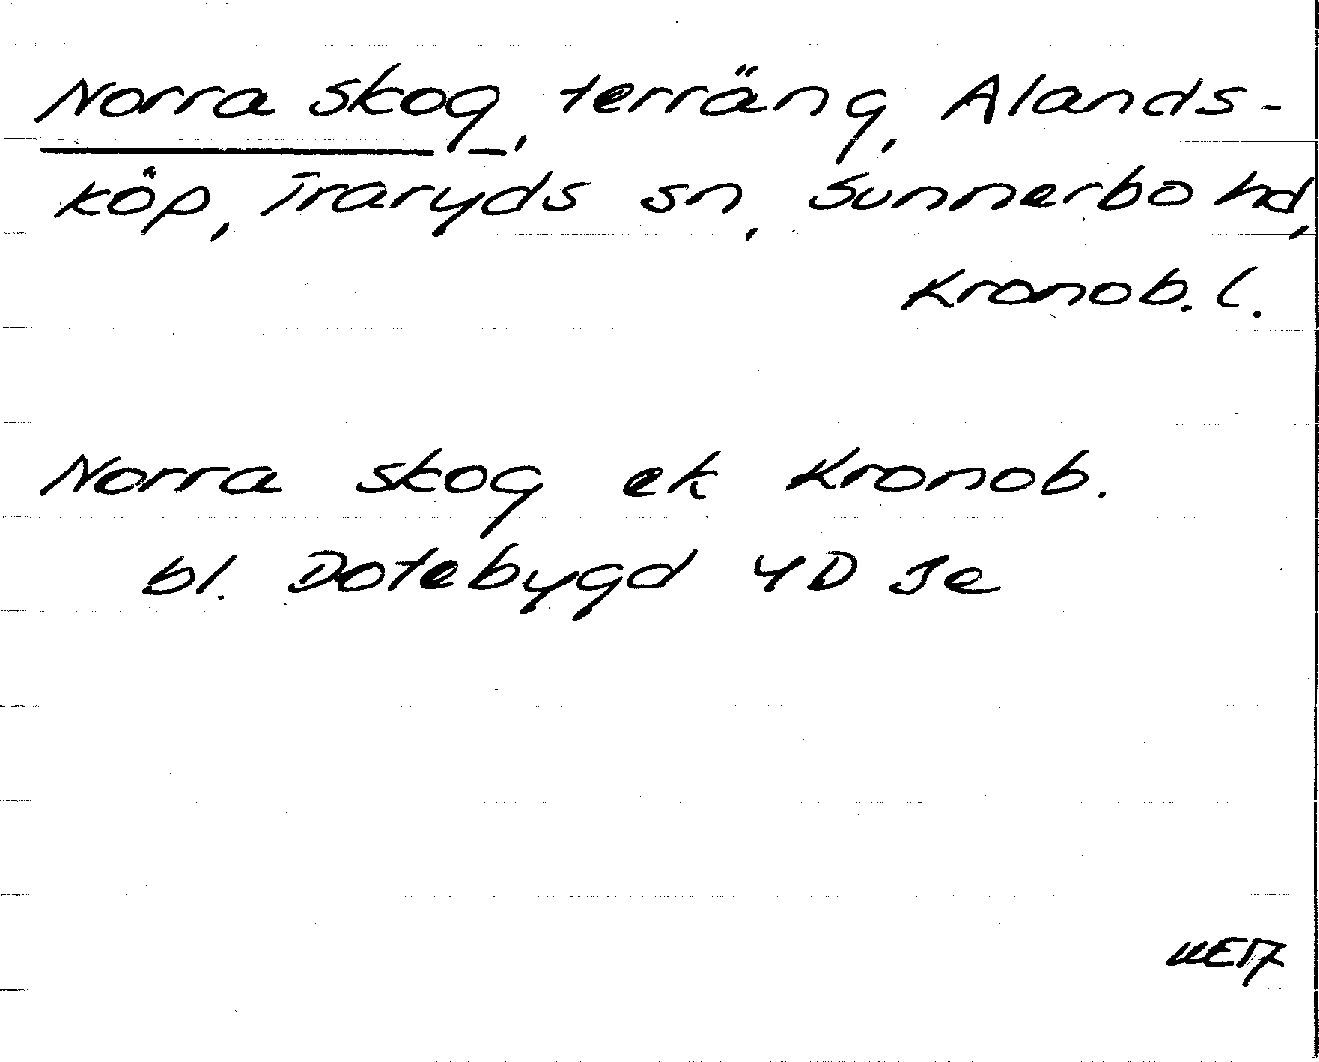 Norra skog, terräng, Alands-
köp, Traryds sn, Sunnerbo hd,
Kronob. l.
Norra skog ek Kronob.
bl. Dotebygd 4D Je